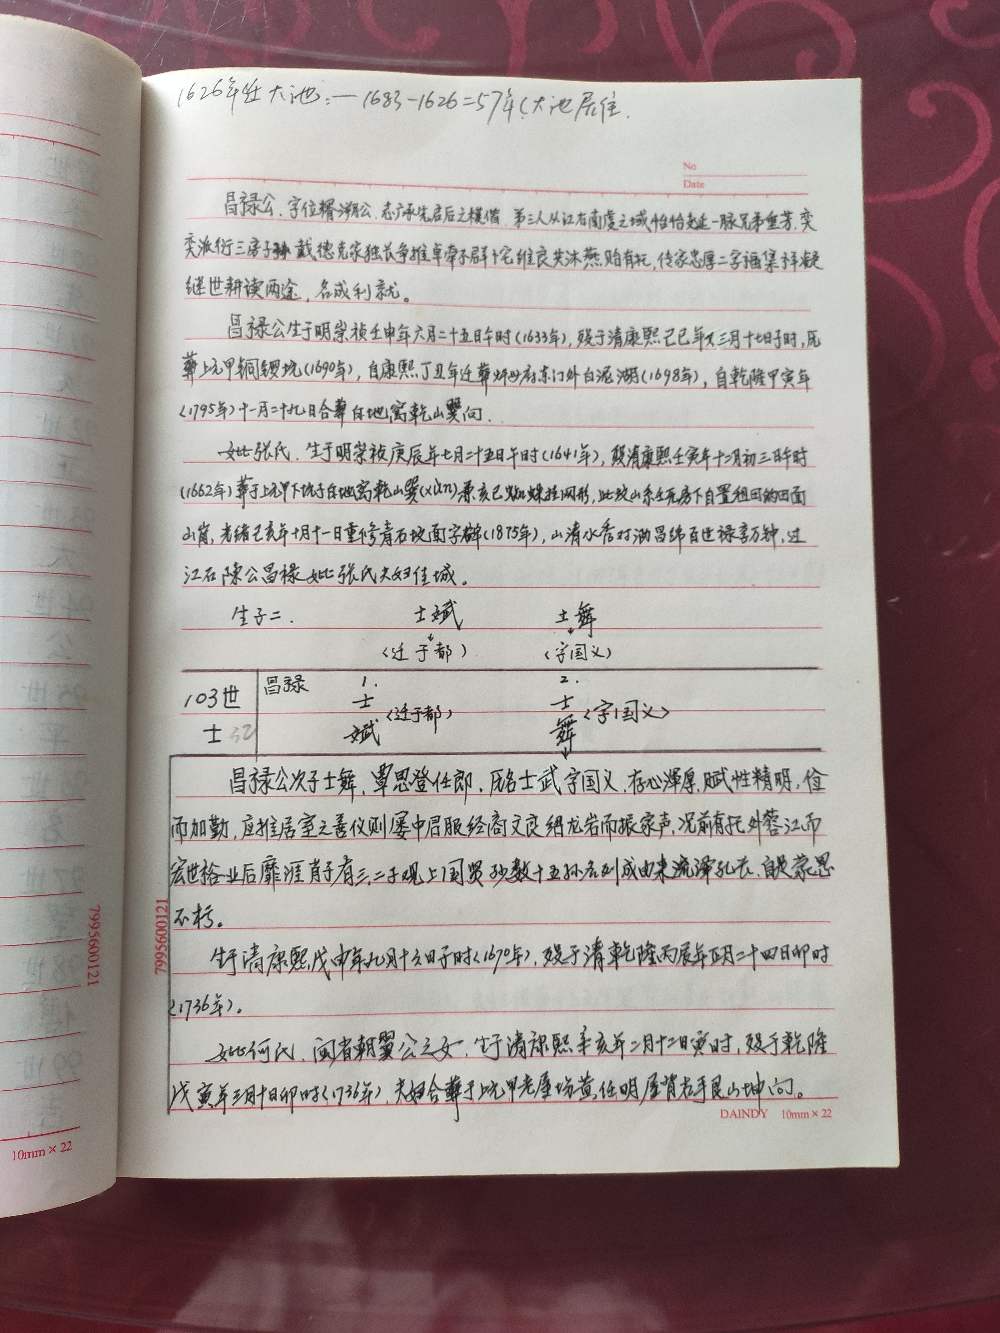 1626年在大池:— 1683-1626=57年(大池居住.
No
Date
昌禄公.字位 湖公.志 承先启后之模偕.第三人从江右南虔之域怡怡 一脉兄弟重芳.奕
奕派衍三房子 戴德克家独长争推卓 群十宅维良共沐燕贻有托,传家忠厚二字福集祥凝
继世耕读两途,名成利就。
昌禄公生于明崇祯壬申年六月二十五日午时(1633年),殁于清康熙己巳年 三月十七日子时,厝
葬上坑甲铜锣坑(1690年),自康熙丁丑年迁葬 府东门外白泥湖(1698年),自乾隆甲寅年
(1795年)十一月二十九日合葬 地窝乾山巽向.
妣张氏.生于明崇祯庚辰年七月二十五日午时(1641年),殁清康熙壬寅年十二月初三日午时
(1662年)葬于上坑甲下坑子 地窝乾山巽(xùn)兼亥巳 蛛挂网形,此坟山系 房下自置租田 田面
山岗,光绪乙亥年十月十一日重修青石坟面字碑(1875年),山清水秀对 昌绵百世禄享万钟,过
江右陈公昌禄妣张氏夫妇佳城。
生子二. 士斌 士舞
(迁于都) (字国义)
103世 昌禄 1. 2.
士 士 (迁于都) 士 (字国义)
斌 舞
昌禄公次子士舞,覃恩登仕郎.厝名士武字国义.存心浑厚,赋性精明,俭
而加勤,应推居室之善仪则屡中眉服经商文良绸龙岩而振家声,况前有托外蓉江而
宏世裕业后靡涯肖子有三.二子观上国 数十五孙 成由来流泽孔长.自是蒙恩
不朽。
生于清康熙戊申年九月十六日子时(1670年),殁于清乾隆丙辰年正月二十四日卯时
(1736年)。
妣何氏.闽省朝翼公之女.生于清康熙辛亥年二月十二日寅时,殁于乾隆
戊寅年三月十日卯时(1736年),夫妇合葬于上坑甲老屋场黄任明屋背右手艮山坤向。
7995600121
7995600121
10mm × 22
DAINDY 10mm × 22